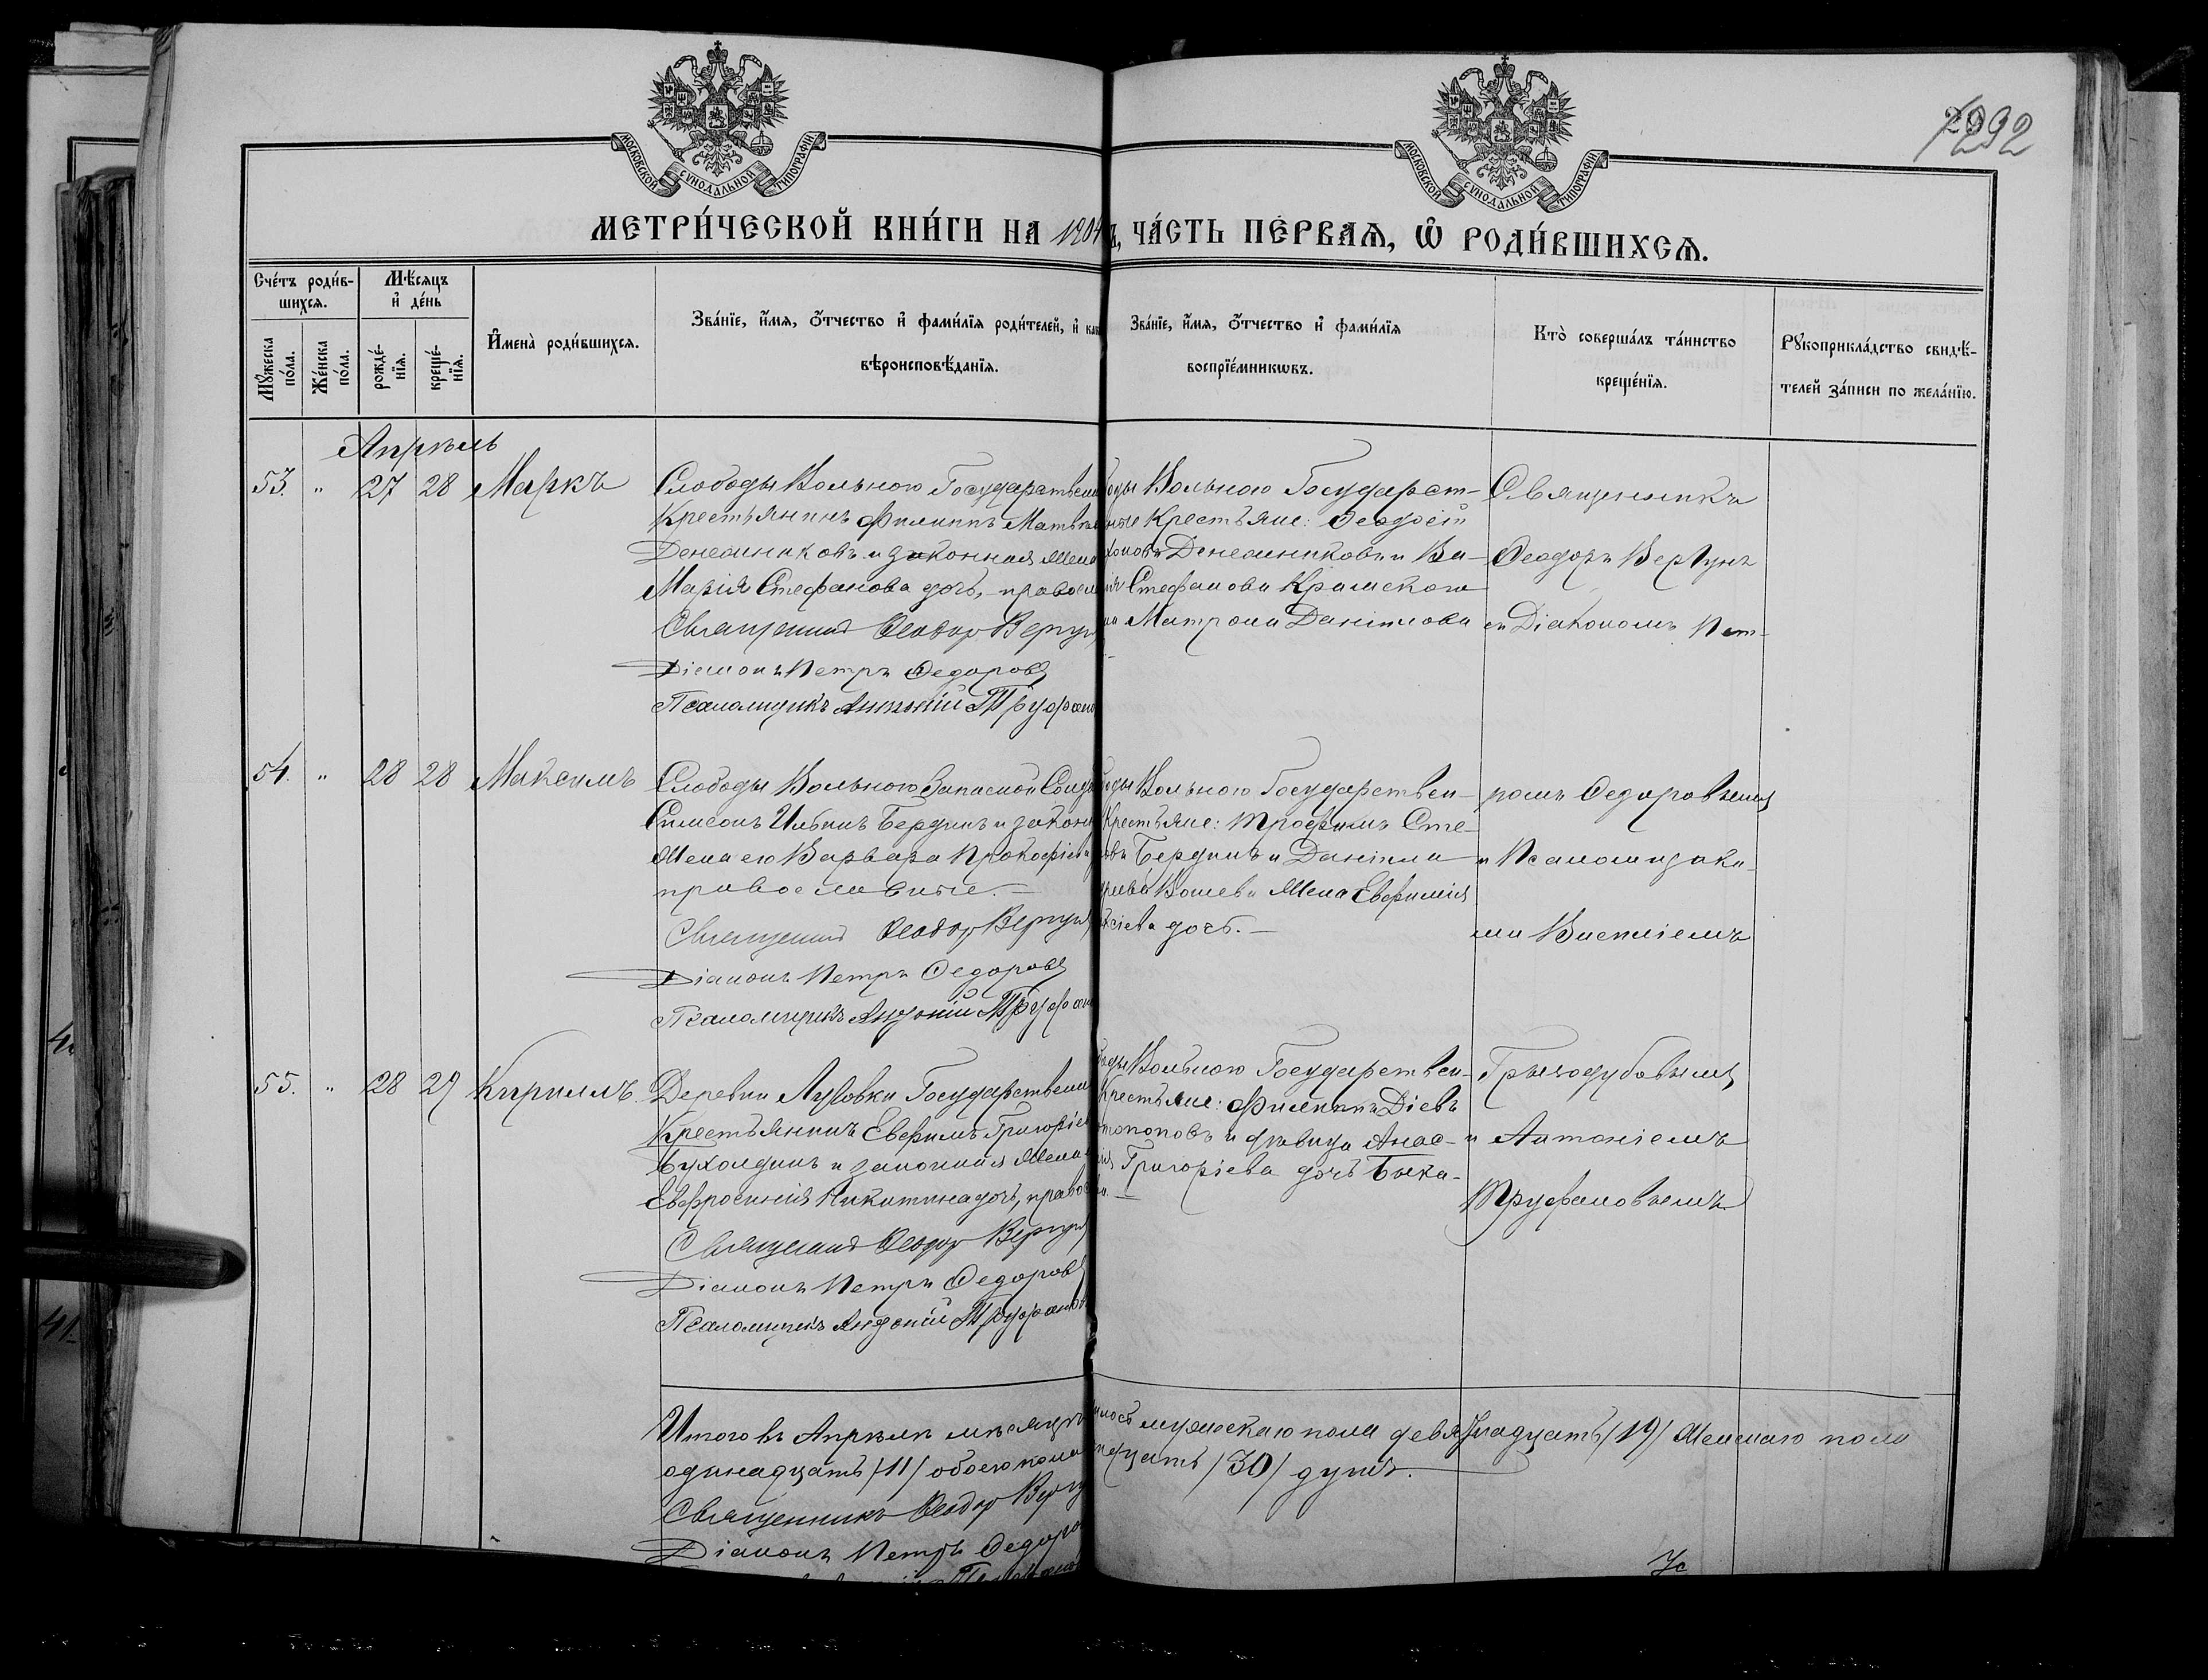 292
МОСКОВСКОЙ СѴНОДАЛЬНОЙ ТИПОГРАФІИ.
МОСКОВСКОЙ СѴНОДАЛЬНОЙ ТИПОГРАФІИ.
МЕТРИ́ЧЕСКОЙ КНИ́ГИ НА 1904 ЧА́СТЬ ПЕ́РВАѦ, Ѡ҆ РОДИ́ВШИХСѦ.
Сче́тъ роди́вшихсѧ.
Мꙋ́жеска по́ла.
Же́нска по́ла.
Мѣ́сѧцъ и҆ де́нь
рожде́нїѧ.
креще́нїѧ.
И҆мена̀ роди́вшихсѧ.
Зва́нїе, и҆́мѧ, ѻ҆́тчество и҆ фами́лїѧ роди́телей, и҆
вѣроисповѣ́данїѧ.
Зва́нїе, и҆́мѧ, ѻ҆́тчество и҆ фами́лїѧ
воспрїе́мникѡвъ.
Кто̀ соверша́лъ та́инство
креще́нїѧ.
Рꙋкоприкла́дство свидѣ́-
телей за́писи по жела́нїю.
Апрѣль
53. " 27 28 Маркъ
Слободы Вольною Государствен
Крестьянинъ Филиппъ Матвѣе
Денесниковъ и законная жена
Марія Стефанова дочь, - правосл
Священникъ Ѳеодоръ Вергун
Діаконъ Петръ Ѳедоровъ
Псаломщикъ Антоній Труфано
оды Вольною Государст-
ные Крестьяне: Ѳеодосій
Денесниковъ и Ва-
Стефанова Крамскова
Матрона Даніилова
Священникъ
Ѳеодоръ Вергунъ
съ Діакономъ Пет-
54. " 28 28 Максимъ
Слободы Вольною Запасной Солда
Симеонъ Ильинъ Бердинъ и законн
жена его Варвара Прокофіева
православные.-
Священникъ Ѳеодоръ Вергун
Діаконъ Петръ Ѳедоровъ
Псаломщикъ Антоній Труфан
оды Вольною Государствен-
Крестьяне: Трофимъ Сте-
Бердинъ и Даніила
жена Евфимія
дочь.-
ромъ Ѳедоровымъ
и Псаломщика-
ми Василіемъ
55. " 28 29 Кириллъ.
Деревни Луговки Государствен
Крестьянинъ Евфимъ Григоріе
Бухолдинъ и законная жена
Евфросинія Никитина дочь, право
Священникъ Ѳеодоръ Вергун
Діаконъ Петръ Ѳедоровъ
Псаломщикъ Антоній Труфанов
оды Вольною Государствен-
Крестьяне: Филиппъ Діевъ
топоповъ и дѣвица Анас-
Григоріева дочь Быка-
Грызодубовымъ
и Антоніемъ
Труфановымъ
Итого въ Апрѣлѣ мѣсяцѣ мужескаго пола девятнадцать /19/ женскаго пола
одинадцать /11/ обоего пола /30/ душъ.
Священникъ Ѳеодоръ Вергу
Діаконъ Петръ Ѳедоро